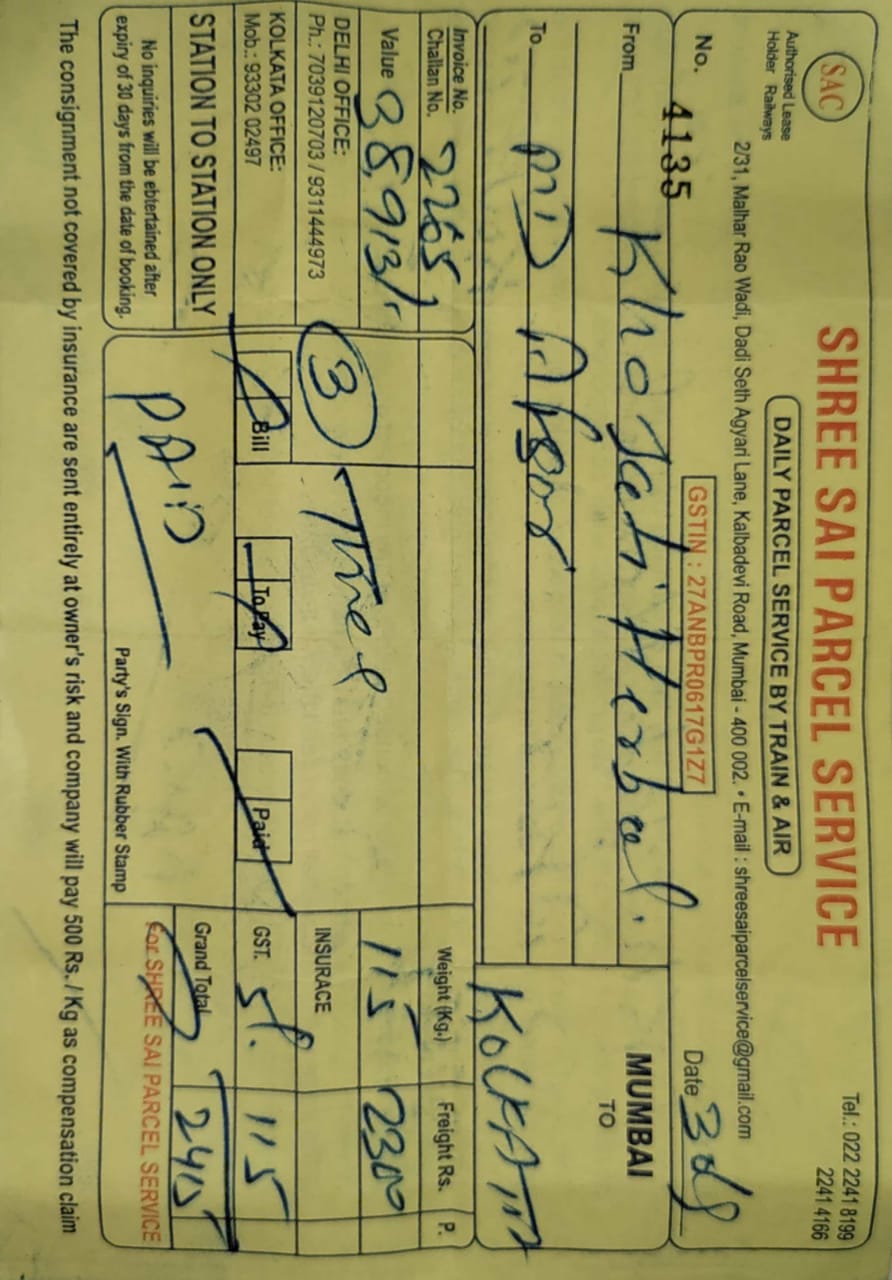 SHREE SAI PARCEL SERVICE
Tel.: 022 2241 8199
2241 4166
SAC
Authorised Lease
Holder Railways
DAILY PARCEL SERVICE BY TRAIN & AIR
2/31, Malhar Rao Wadi, Dadi Seth Agyari Lane, Kalbadevi Road, Mumbai - 400 002. • E-mail : shreesaiparcelservice@gmail.com
No. 4135
GSTIN : 27ANBPR0617G1Z7
Date
From Khojati Herbal.
MUMBAI
TO
KOLKATA
To MD
Invoice No.
Challan No. 2265
Weight (Kg.) Freight Rs. P.
Value 38,913/-
115 2300
DELHI OFFICE:
Ph.: 7039120703 / 9311444973
3 Three
INSURACE
KOLKATA OFFICE:
Mob.: 93302 02497
Bill To Pay Paid
GST. 5%. 115
STATION TO STATION ONLY
PAID
Grand Total 2415
No inquiries will be ebtertained after
expiry of 30 days from the date of booking.
Party's Sign. With Rubber Stamp
For SHREE SAI PARCEL SERVICE
The consignment not covered by insurance are sent entirely at owner's risk and company will pay 500 Rs. / Kg as compensation claim